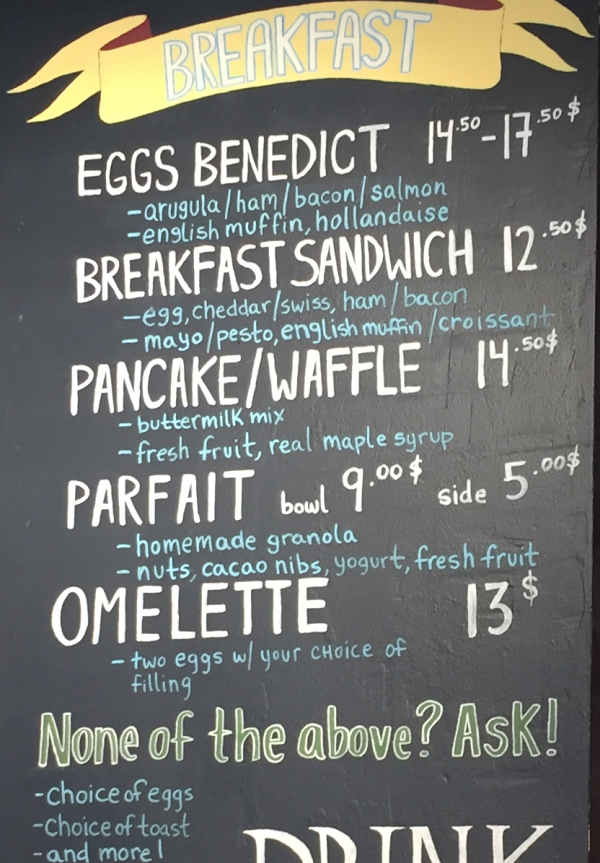 BREAKFAST
EGGS BENEDICT 14.50-17.50$
-arugula/ham/bacon/salmon
-english muffin, hollandaise
BREAKFAST SANDWICH 12.50$
-egg, cheddar/swiss, ham/bacon
-mayo/pesto, english muffin/croissant
PANCAKE/WAFFLE 14.50$
-buttermilk mix
-fresh fruit, real maple syrup
PARFAIT bowl 9.00$ side 5.00$
-homemade granola
-nuts, cacao nibs, yogurt, fresh fruit
OMELETTE 13$
-two eggs w/ your choice of
filling
None of the above? Ask!
-Choice of eggs
-Choice of toast
-and more!
DRINK